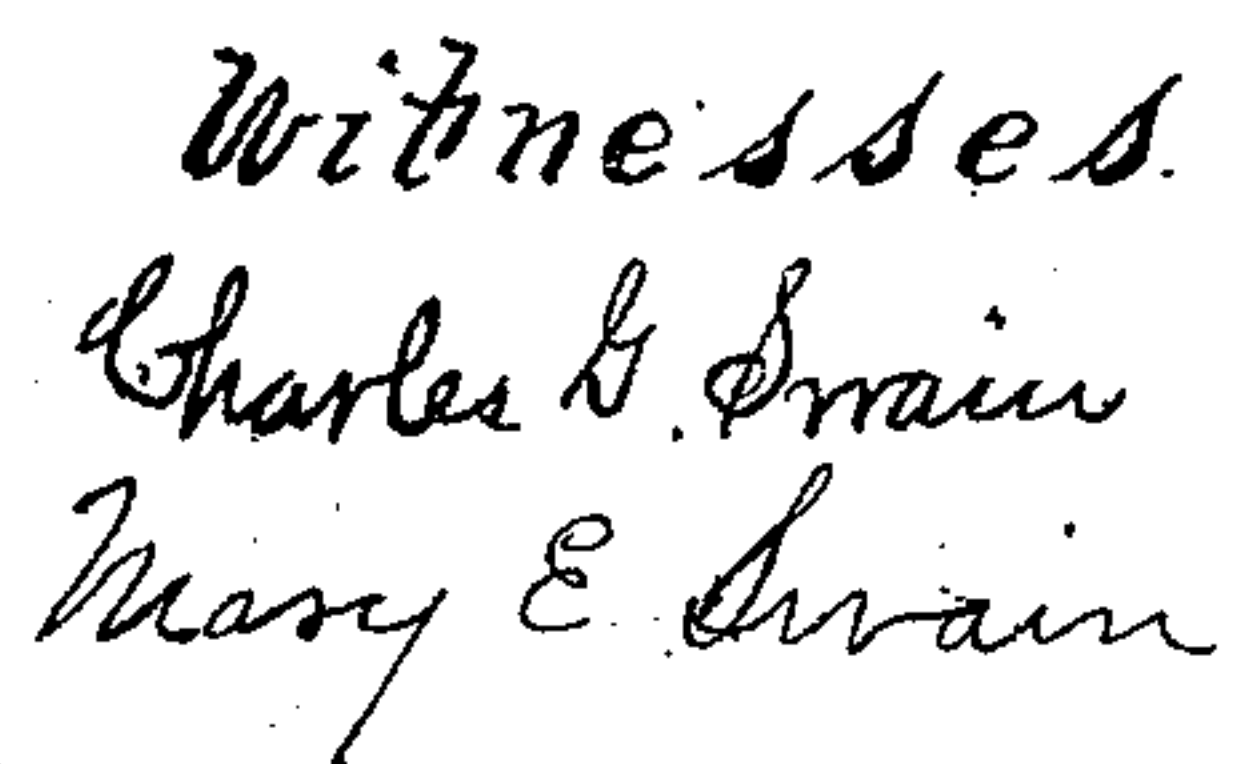 Witnesses.
Charles G. Swain
Mary E. Swain